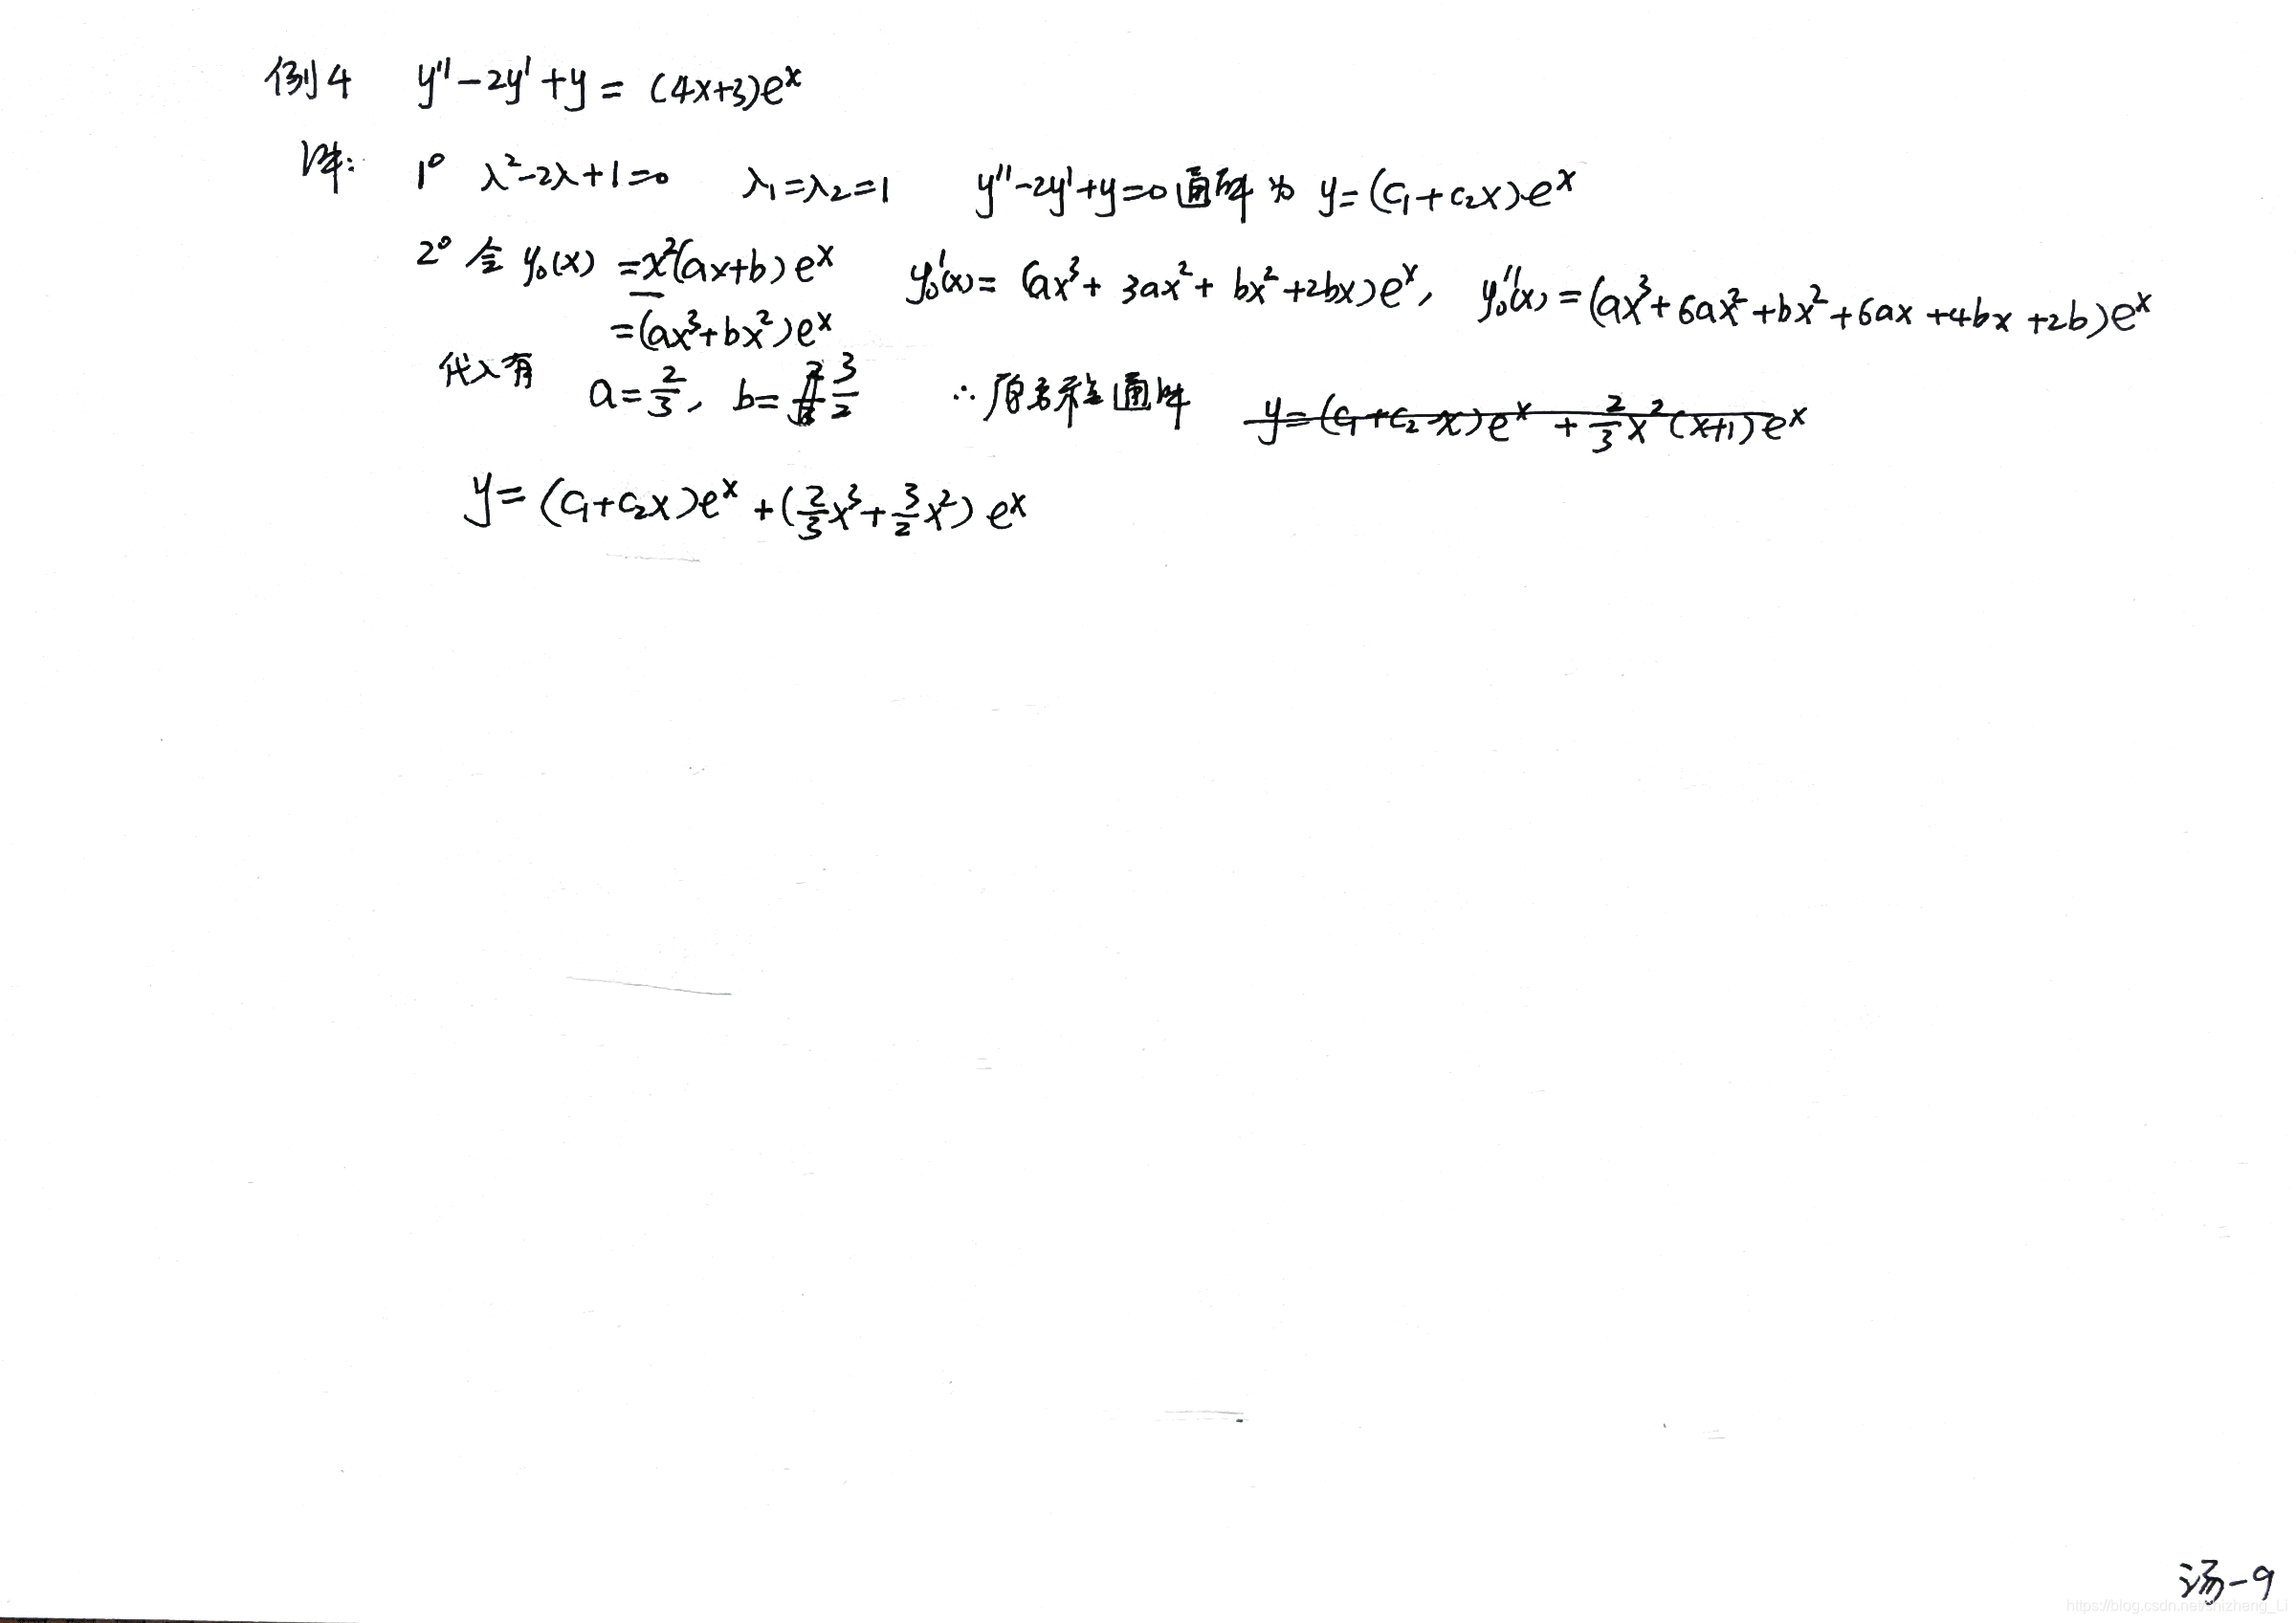 例4 y''-2y'+y=(4x+3)eˣ
解: 1° λ²-2λ+1=0 λ₁=λ₂=1 y''-2y'+y=0通解为 y=(C₁+C₂x)eˣ
2° 令 y₀(x)=x²(ax+b)eˣ y₀'(x)=(ax³+3ax²+bx²+2bx)eˣ, y₀''(x)=(ax³+6ax²+bx²+6ax+4bx+2b)eˣ
=(ax³+bx²)eˣ
代入有 a=2/3, b=3/2 ∴原方程通解 y=(C₁+C₂x)eˣ+2/3x²(x+1)eˣ
y=(C₁+C₂x)eˣ+(2/3x³+3/2x²)eˣ
汤-9
https://blog.csdn.net/shizheng_Li